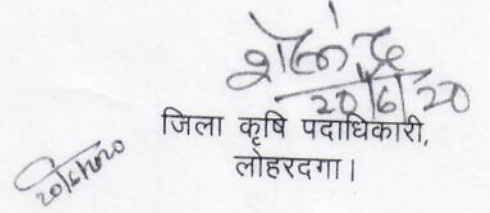 शैलेन्द्र
20/6/20
जिला कृषि पदाधिकारी,
लोहरदगा।
20/6/2020